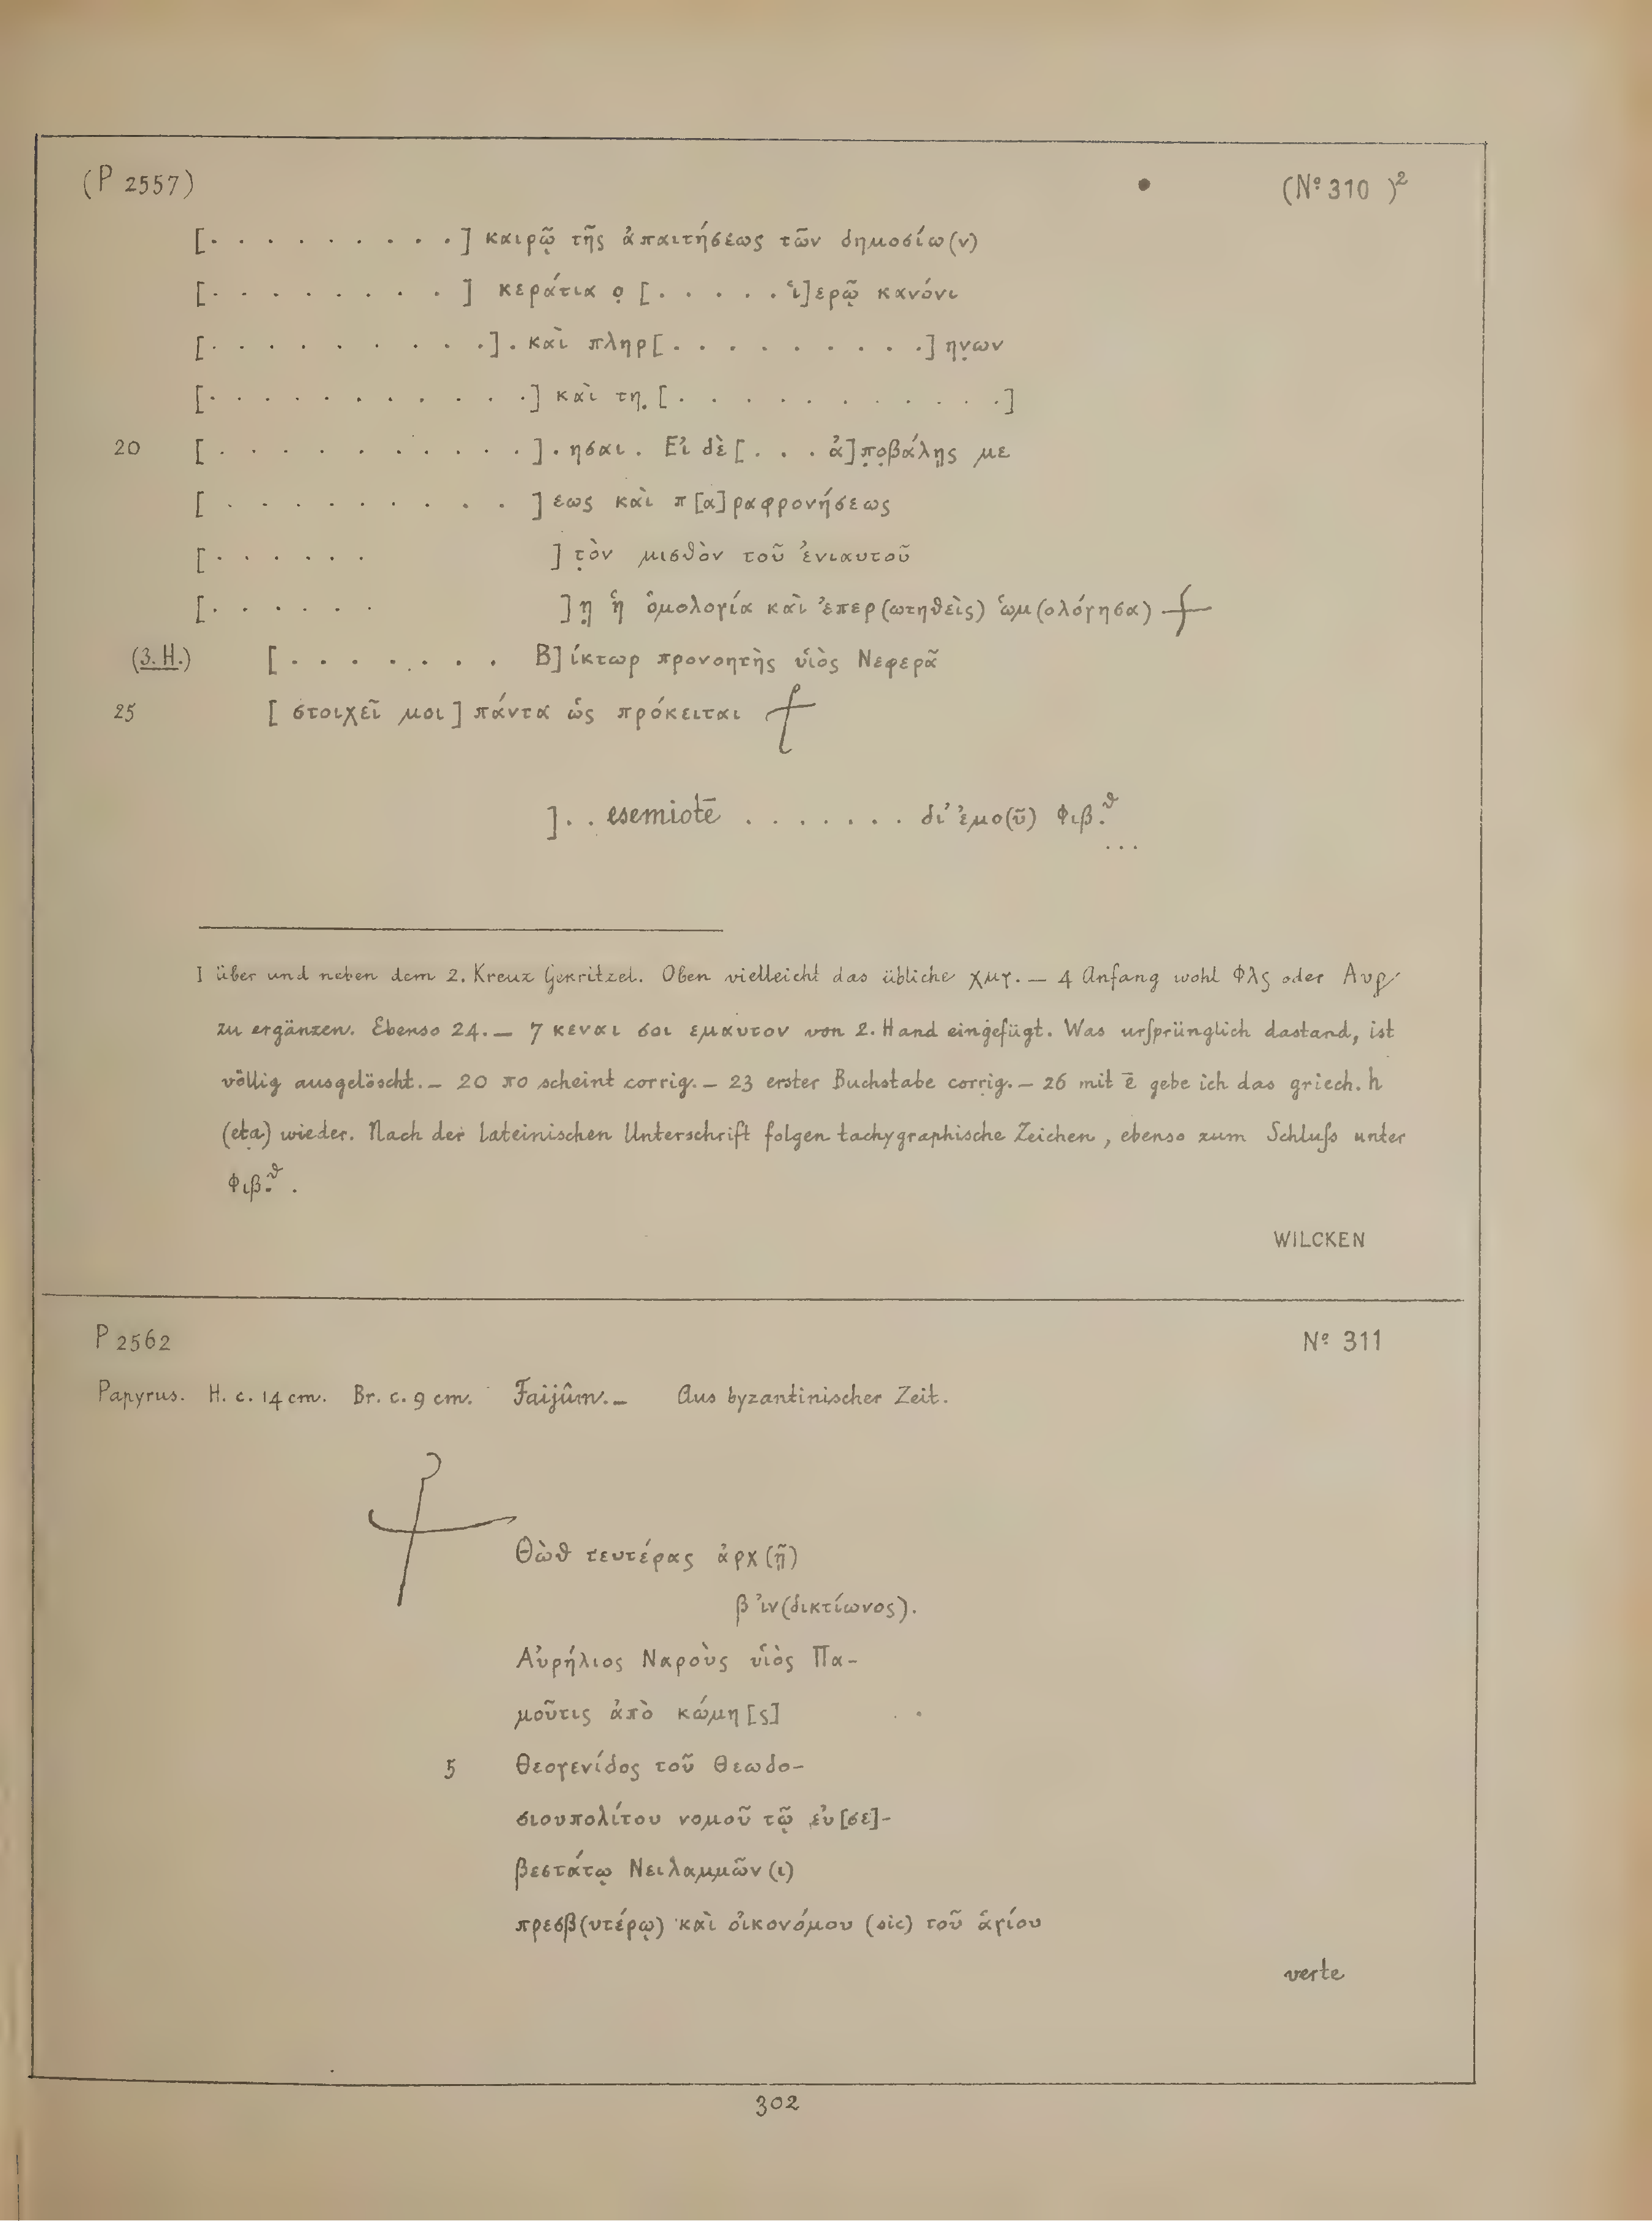 (P 2557) (Nº 310 )²
[. . . . . . . . .] καιρῷ τῆς ἀπαιτήσεως τῶν δημοσίω(ν)
[. . . . . . . .] κεράτια ο̣ [. . . . . ἱ]ερῷ κανόνι
[. . . . . . . . . .] . καὶ πληρ[. . . . . . . . .] ην̣ων
[. . . . . . . . . . .] καὶ τη̣ [. . . . . . . . . . .]
20 [. . . . . . . . . . .] . ησαι. Εἰ δὲ [. . . ἀ]π̣ο̣βάλῃς με
[. . . . . . . . . . ]εως καὶ π[α]ραφρονήσεως
[. . . . . . ] τ̣ὸν μισθὸν τοῦ ἐνιαυτοῦ
[. . . . . . ]η̣ ἡ ὁμολογία καὶ ἐπερ(ωτηθεὶς) ὡμ(ολόγησα) ⳨
(3. H.) [. . . . . . . Β]ίκτωρ προνοητὴς υἱὸς Νεφερᾶ
25 [στοιχεῖ μοι] πάντα ὡς πρόκειται ⳨
] . . esemiotē . . . . . . . δι’ ἐμο(ῦ) Φιβ.ϑ
. . .
1 über und neben dem 2. Kreuz Gekritzel. Oben vielleicht das übliche χμγ. — 4 Anfang wohl Φλς oder Αυρ/
zu ergänzen. Ebenso 24. — 7 κεναι σοι εμαυτον von 2. Hand eingefügt. Was urſprünglich dastand, ist
völlig ausgelöscht. — 20 πο scheint corrig. — 23 erster Buchstabe corrig. — 26 mit ē gebe ich das griech. h
(eta) wieder. Nach der lateinischen Unterschrift folgen tachygraphische Zeichen, ebenso zum Schluſs unter
Φιβ.ϑ .
WILCKEN
P 2562 Nº 311
Papyrus. H. c. 14 cm. Br. c. 9 cm. Faijûm. — Aus byzantinischer Zeit.
⳨ Θὼθ τευτέρας ἀρχ(ῇ)
β ἰν(δικτίωνος).
Αὐρήλιος Ναροὺς υἱὸς Πα-
μοῦτις ἀπὸ κώμη[ς]
5 Θεογενίδος τοῦ Θεωδο-
σιουπολίτου νομοῦ τῷ εὐ[σε]-
βεστάτῳ Νειλαμμῶν(ι)
πρεσβ(υτέρῳ) καὶ οἰκονόμου (sic) τοῦ ἁγίου
verte
302